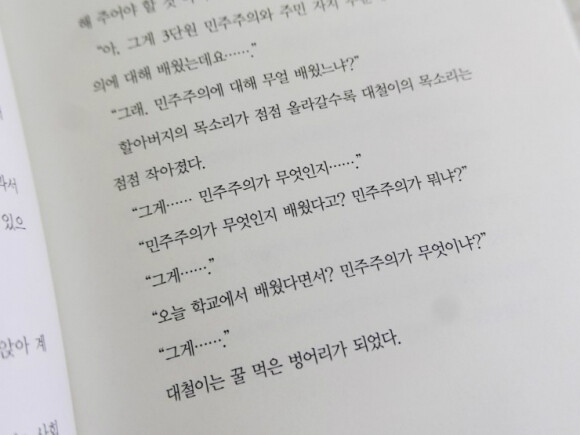 해 주어야 할 것
“아, 그게 3단원 민주주의와 주민 자치
의에 대해 배웠는데요…….”
“그래. 민주주의에 대해 무얼 배웠느냐?”
할아버지의 목소리가 점점 올라갈수록 대철이의 목소리는
점점 작아졌다.
“그게…… 민주주의가 무엇인지…….”
“민주주의가 무엇인지 배웠다고? 민주주의가 뭐냐?”
“그게…….”
“오늘 학교에서 배웠다면서? 민주주의가 무엇이냐?”
“그게…….”
대철이는 꿀 먹은 벙어리가 되었다.
있으
앉아 계